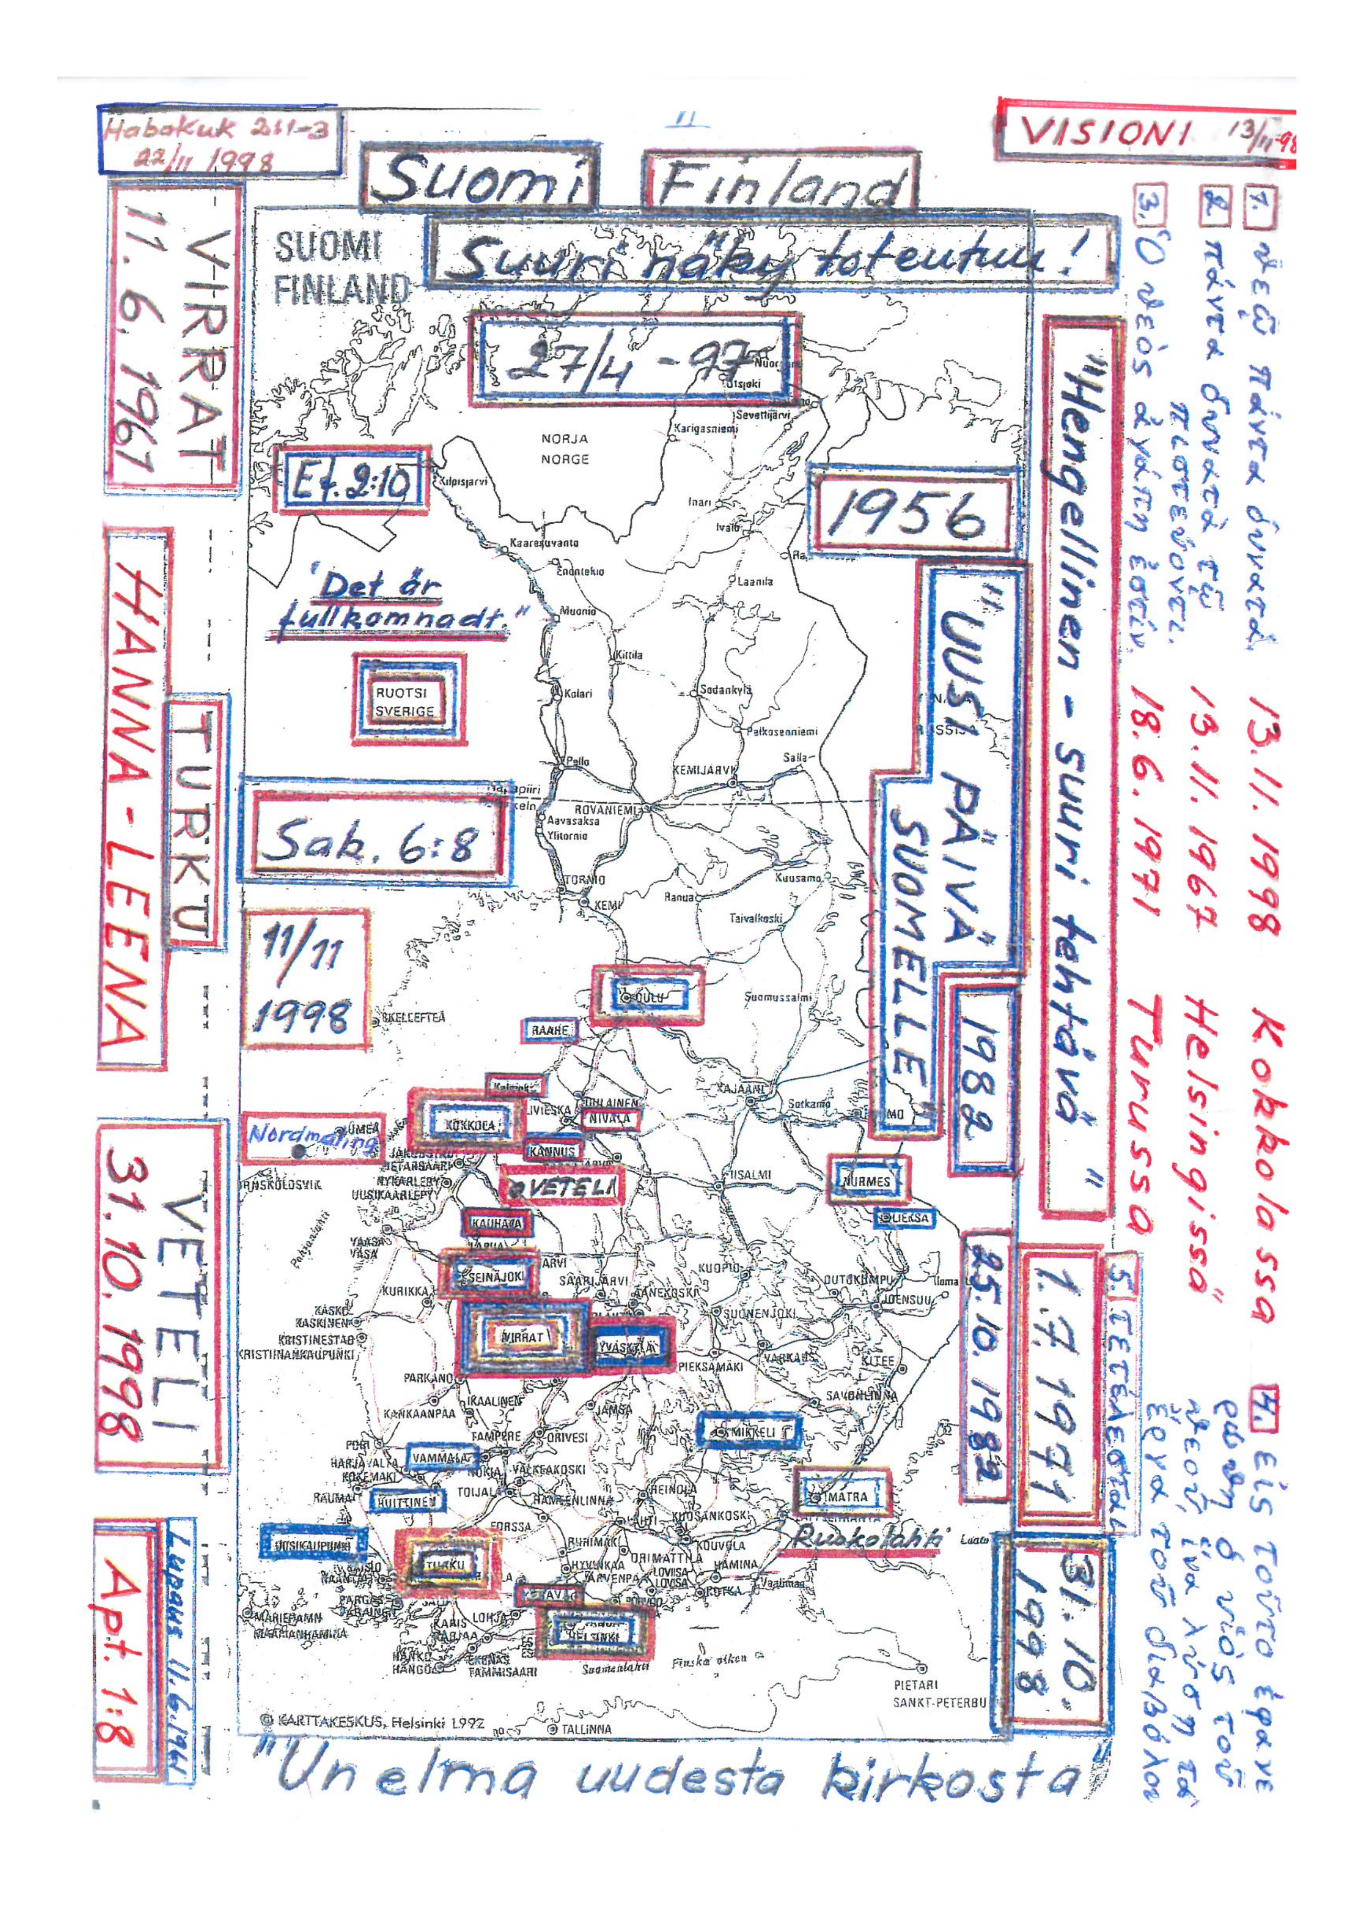 Habakuk 2:1-3
22/11 1998
11
VISIONI 13/11-98
Suomi Finland
SUOMI
FINLAND
Suuri näky toteutuu!
27/4 - 97
Utsjoki
Sevettijärvi
Karigasniemi
NORJA
NORGE
Ef. 2:10
Kilpisjärvi
Inari
Ivalo
1956
Kaaresuvanto
Enontekiö
Laanila
"Det är
fullkomnadt."
Muonio
Kittilä
RUOTSI
SVERIGE
Kolari
Sodankylä
Pelkosenniemi
Pello
KEMIJÄRVI
Salla
ROVANIEMI
Aavasaksa
Ylitornio
Sak. 6:8
TORNIO
KEMI
Ranua
Kuusamo
Taivalkoski
11/11
1998
SKELLEFTEÅ
OULU
Suomussalmi
RAAHE
KAJAANI
Sotkamo
NIVALA
KOKKOLA
KANNUS
UMEÅ
Nordmaling
PIETARSAARI
NYKARLEBY
UUSIKAARLEPYY
VETELI
IISALMI
NURMES
LIEKSA
KAUHAVA
VAASA
VASA
Pohjanlahti
SEINÄJOKI
SAARIJÄRVI
KUOPIO
OUTOKUMPU
JOENSUU
KURIKKA
ÄÄNEKOSKI
SUONENJOKI
KASKÖ
KASKINEN
KRISTINESTAD
KRISTIINANKAUPUNKI
VIRRAT
JYVÄSKYLÄ
PIEKSÄMÄKI
VARKAUS
KITEE
PARKANO
SAVONLINNA
IKAALINEN
KANKAANPÄÄ
JÄMSÄ
MIKKELI
PORI
TAMPERE
ORIVESI
HARJAVALTA
KOKEMÄKI
VAMMALA
NOKIA
VALKEAKOSKI
RAUMA
HUITTINEN
TOIJALA
HÄMEENLINNA
HEINOLA
IMATRA
Ruokolahti
LAHTI
KUUSANKOSKI
KOUVOLA
UUSIKAUPUNKI
FORSSA
RIIHIMÄKI
HYVINKÄÄ
ORIMATTILA
JÄRVENPÄÄ
LOVIISA
LOVISA
HAMINA
KOTKA
Vaalimaa
TURKU
PARGAS
PARAINEN
MARIEHAMN
MAARIANHAMINA
LOHJA
KARIS
KARJAA
HELSINKI
HANKO
HANGÖ
EKENÄS
TAMMISAARI
Suomenlahti
Finska viken
PIETARI
SANKT-PETERBU
© KARTTAKESKUS, Helsinki 1992
TALLINNA
"Unelma uudesta kirkosta"
VIRRAT
11. 6. 1961
HANNA-LEENA
TURKU
VETELI
31.10.1998
Lupaus 11.6.1961
Apt. 1:8
"UUSI PÄIVÄ
SUOMELLE"
1982
25.10.1982
"Hengellinen - suuri tehtävä"
1.7.1971
5. ΤΕΤΕΛΕΣΤΑΙ
31.10.
1998
1. θεῷ πάντα δυνατά. 13.11.1998 Kokkolassa
2. πάντα δυνατὰ τῷ
πιστεύοντι. 13.11.1967 Helsingissä
3. Ὁ θεὸς ἀγάπη ἐστίν. 18.6.1971 Turussa
4. εἰς τοῦτο ἐφανε
ρώθη ὁ υἱὸς τοῦ
θεοῦ, ἵνα λύσῃ τὰ
ἔργα τοῦ διαβόλου